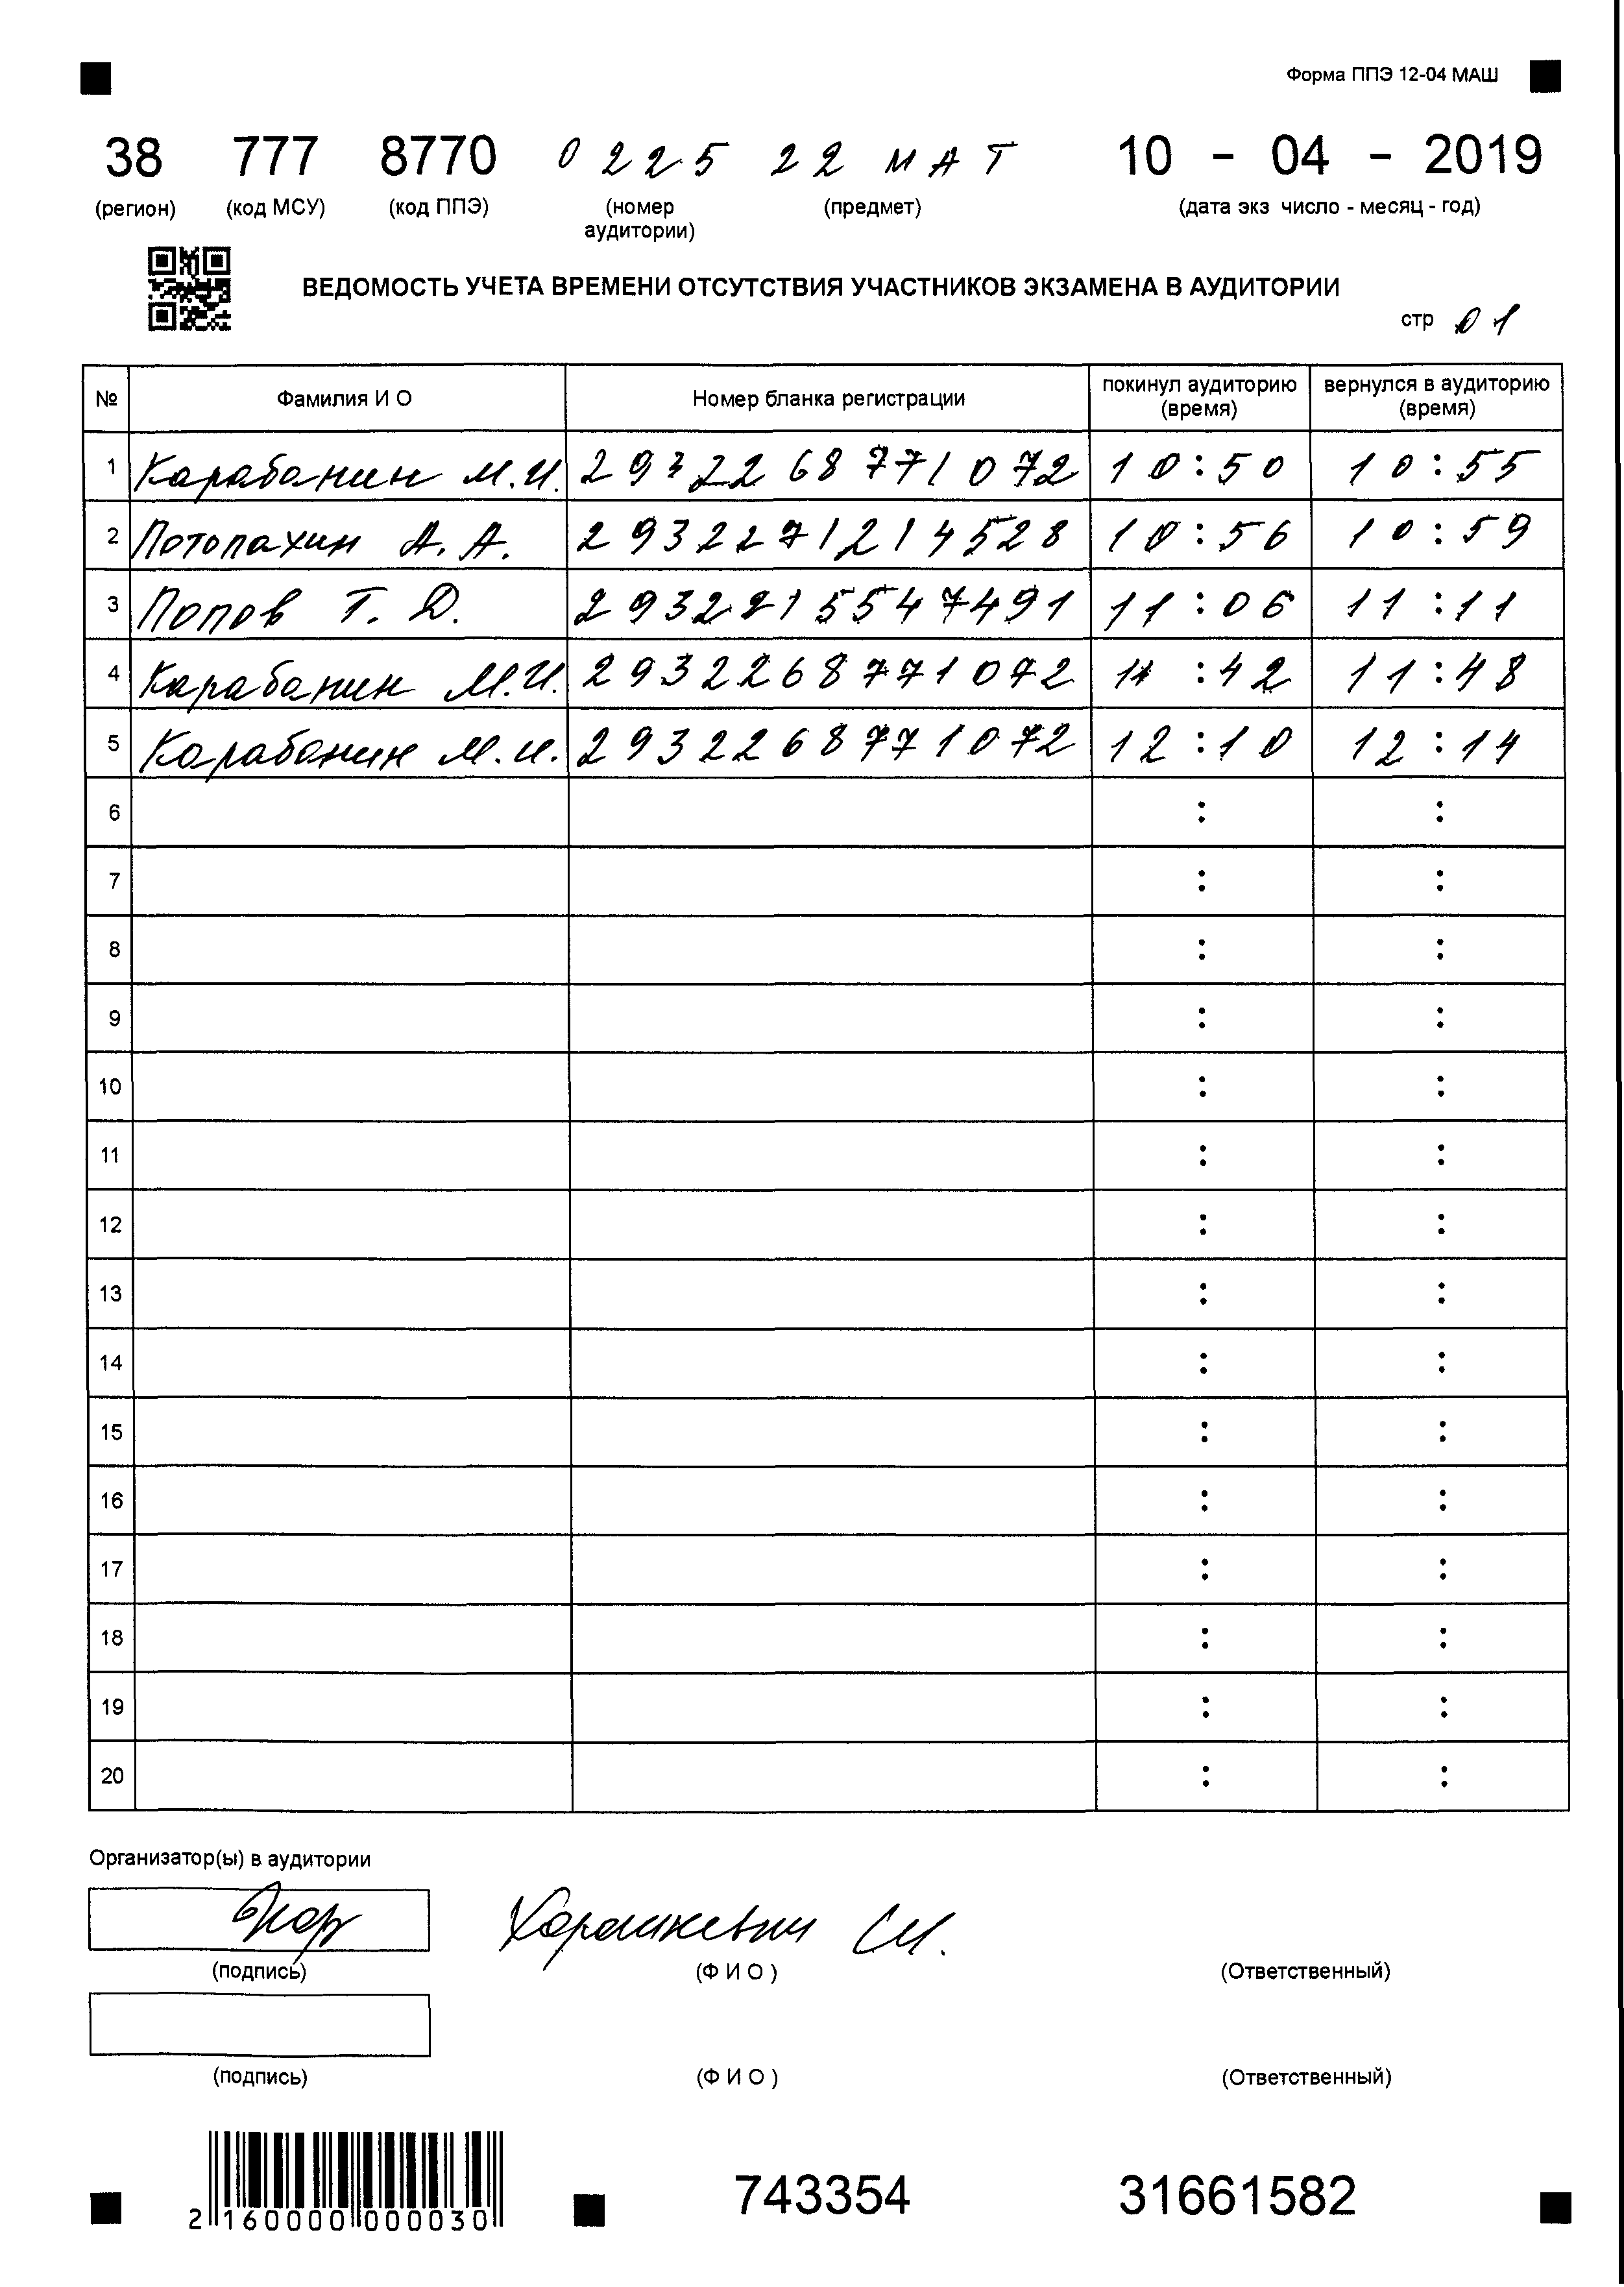 Форма ППЭ 12-04 МАШ
38 777 8770 0225 22 МАТ 10 - 04 - 2019
(регион) (код МСУ) (код ППЭ) (номер аудитории) (предмет) (дата экз число - месяц - год)
ВЕДОМОСТЬ УЧЕТА ВРЕМЕНИ ОТСУТСТВИЯ УЧАСТНИКОВ ЭКЗАМЕНА В АУДИТОРИИ
стр 01
№ Фамилия И О Номер бланка регистрации покинул аудиторию (время) вернулся в аудиторию (время)
1 Карабанин М.И. 2932268771072 10:50 10:55
2 Потопахин А.А. 2932271214528 10:56 10:59
3 Попов Т.Д. 2932215547491 11:06 11:11
4 Карабанин М.И. 2932268771072 11:42 11:48
5 Карабанин М.И. 2932268771072 12:10 12:14
6 : :
7 : :
8 : :
9 : :
10 : :
11 : :
12 : :
13 : :
14 : :
15 : :
16 : :
17 : :
18 : :
19 : :
20 : :
Организатор(ы) в аудитории
(подпись) (Ф И О ) (Ответственный)
(подпись) (Ф И О ) (Ответственный)
2 160000 000030
743354 31661582